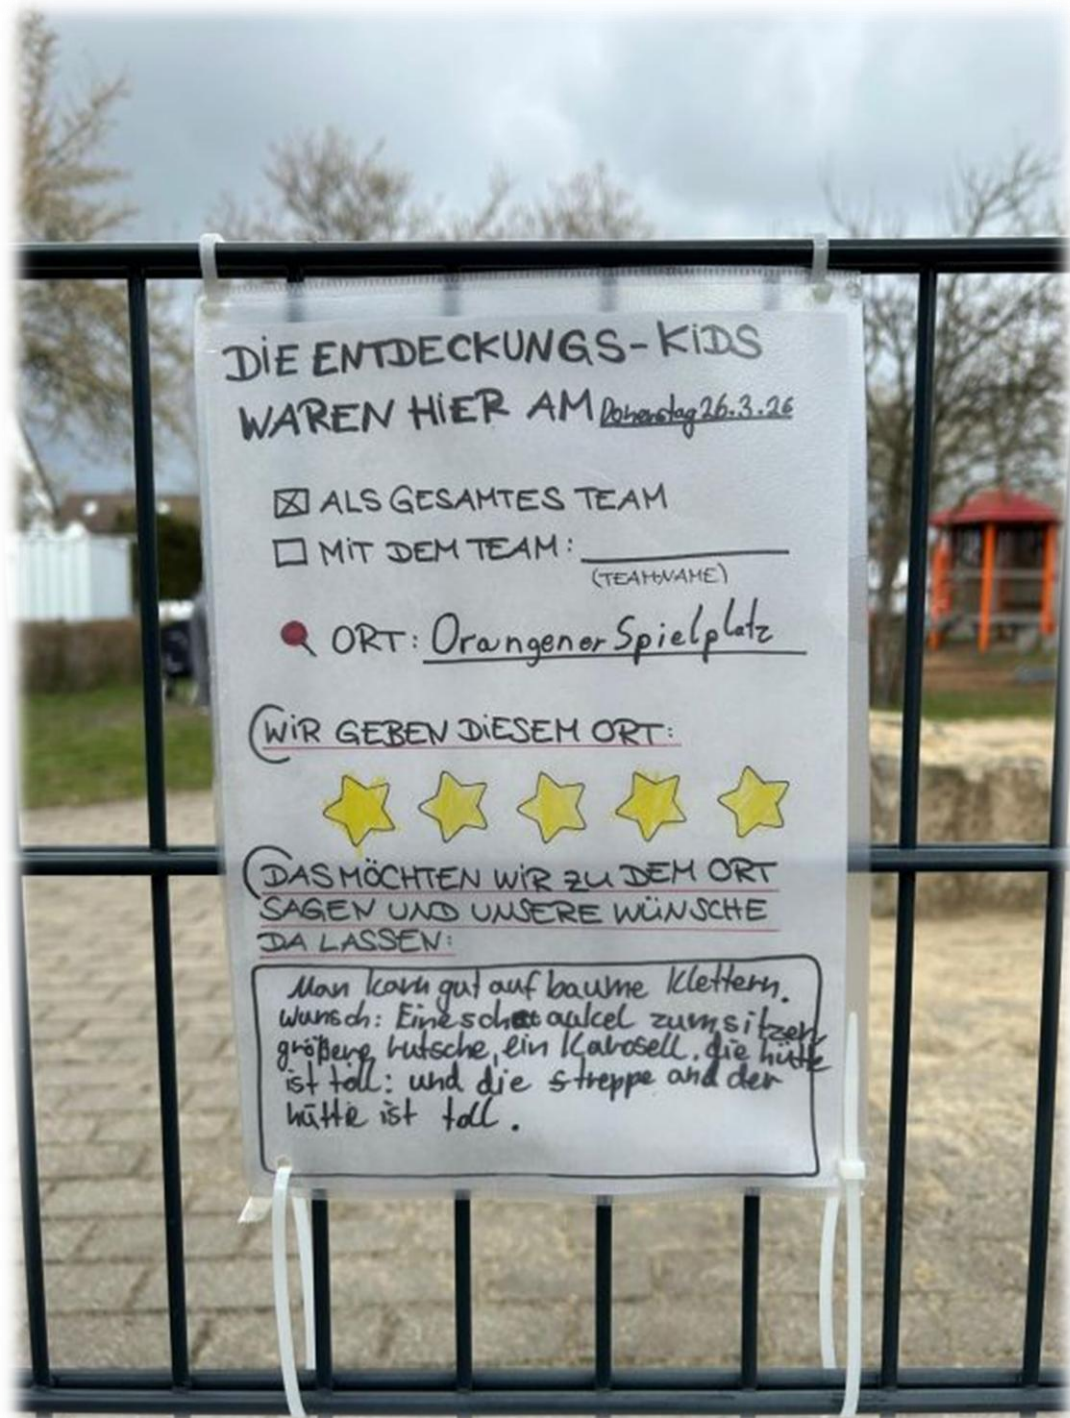 DIE ENTDECKUNGS-KIDS
WAREN HIER AM Donerstag 26.3.26
ALS GESAMTES TEAM
MIT DEM TEAM:
(TEAMNAME)
ORT: Orangener Spielplatz
WIR GEBEN DIESEM ORT:
DAS MÖCHTEN WIR ZU DEM ORT
SAGEN UND UNSERE WÜNSCHE
DA LASSEN:
Man kann gut auf baume klettern.
wunsch: Eine schaukel zum sitzen
größere rutsche, ein Karosell. die hütte
ist toll: und die streppe and der
hütte ist toll.